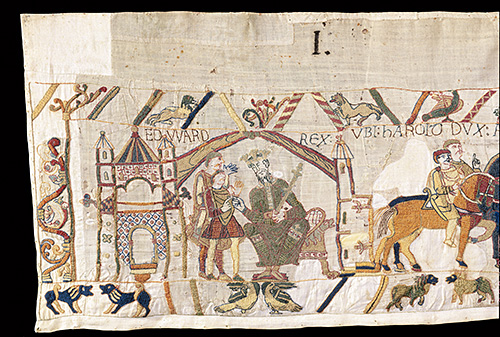 I.
EDVVARD REX: VBI: hAROLD DVX: